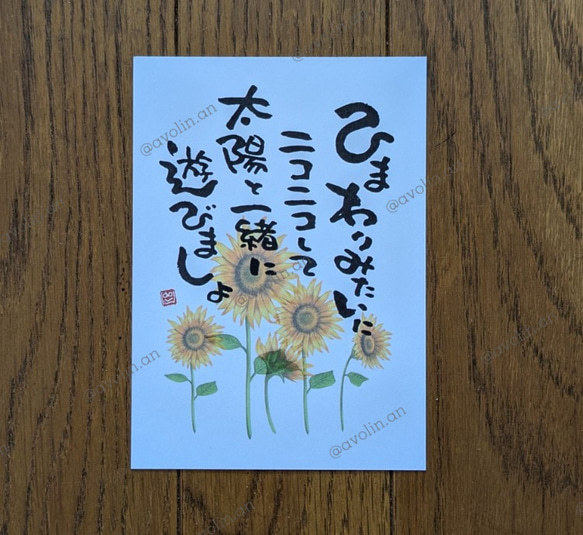 ひまわりみたいに
ニコニコして
太陽と一緒に
遊びましょ
@avolin.an
@avolin.an
@avolin.an